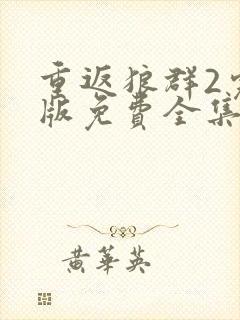 重返狼群2完
版免費全集
黄華英